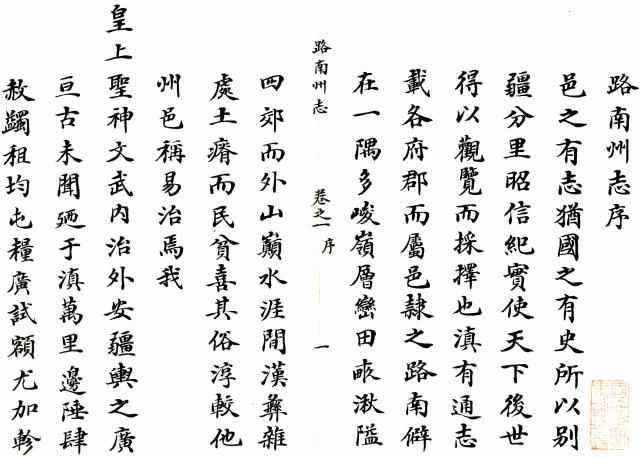 路南州志序
邑之有志猶國之有史所以别
疆分里昭信紀實使天下後世
得以觀覽而採擇也滇有通志
載各府郡而屬邑隸之路南僻
在一隅多峻嶺層巒田畝湫隘
路南州志 卷之一 序 一
四郊而外山巔水涯間漢彝雜
處土瘠而民貧喜其俗淳較他
州邑稱易治焉我
皇上聖神文武内治外安疆輿之廣
亘古未聞廼于滇萬里邊陲肆
赦蠲租均屯糧廣試額尤加軫